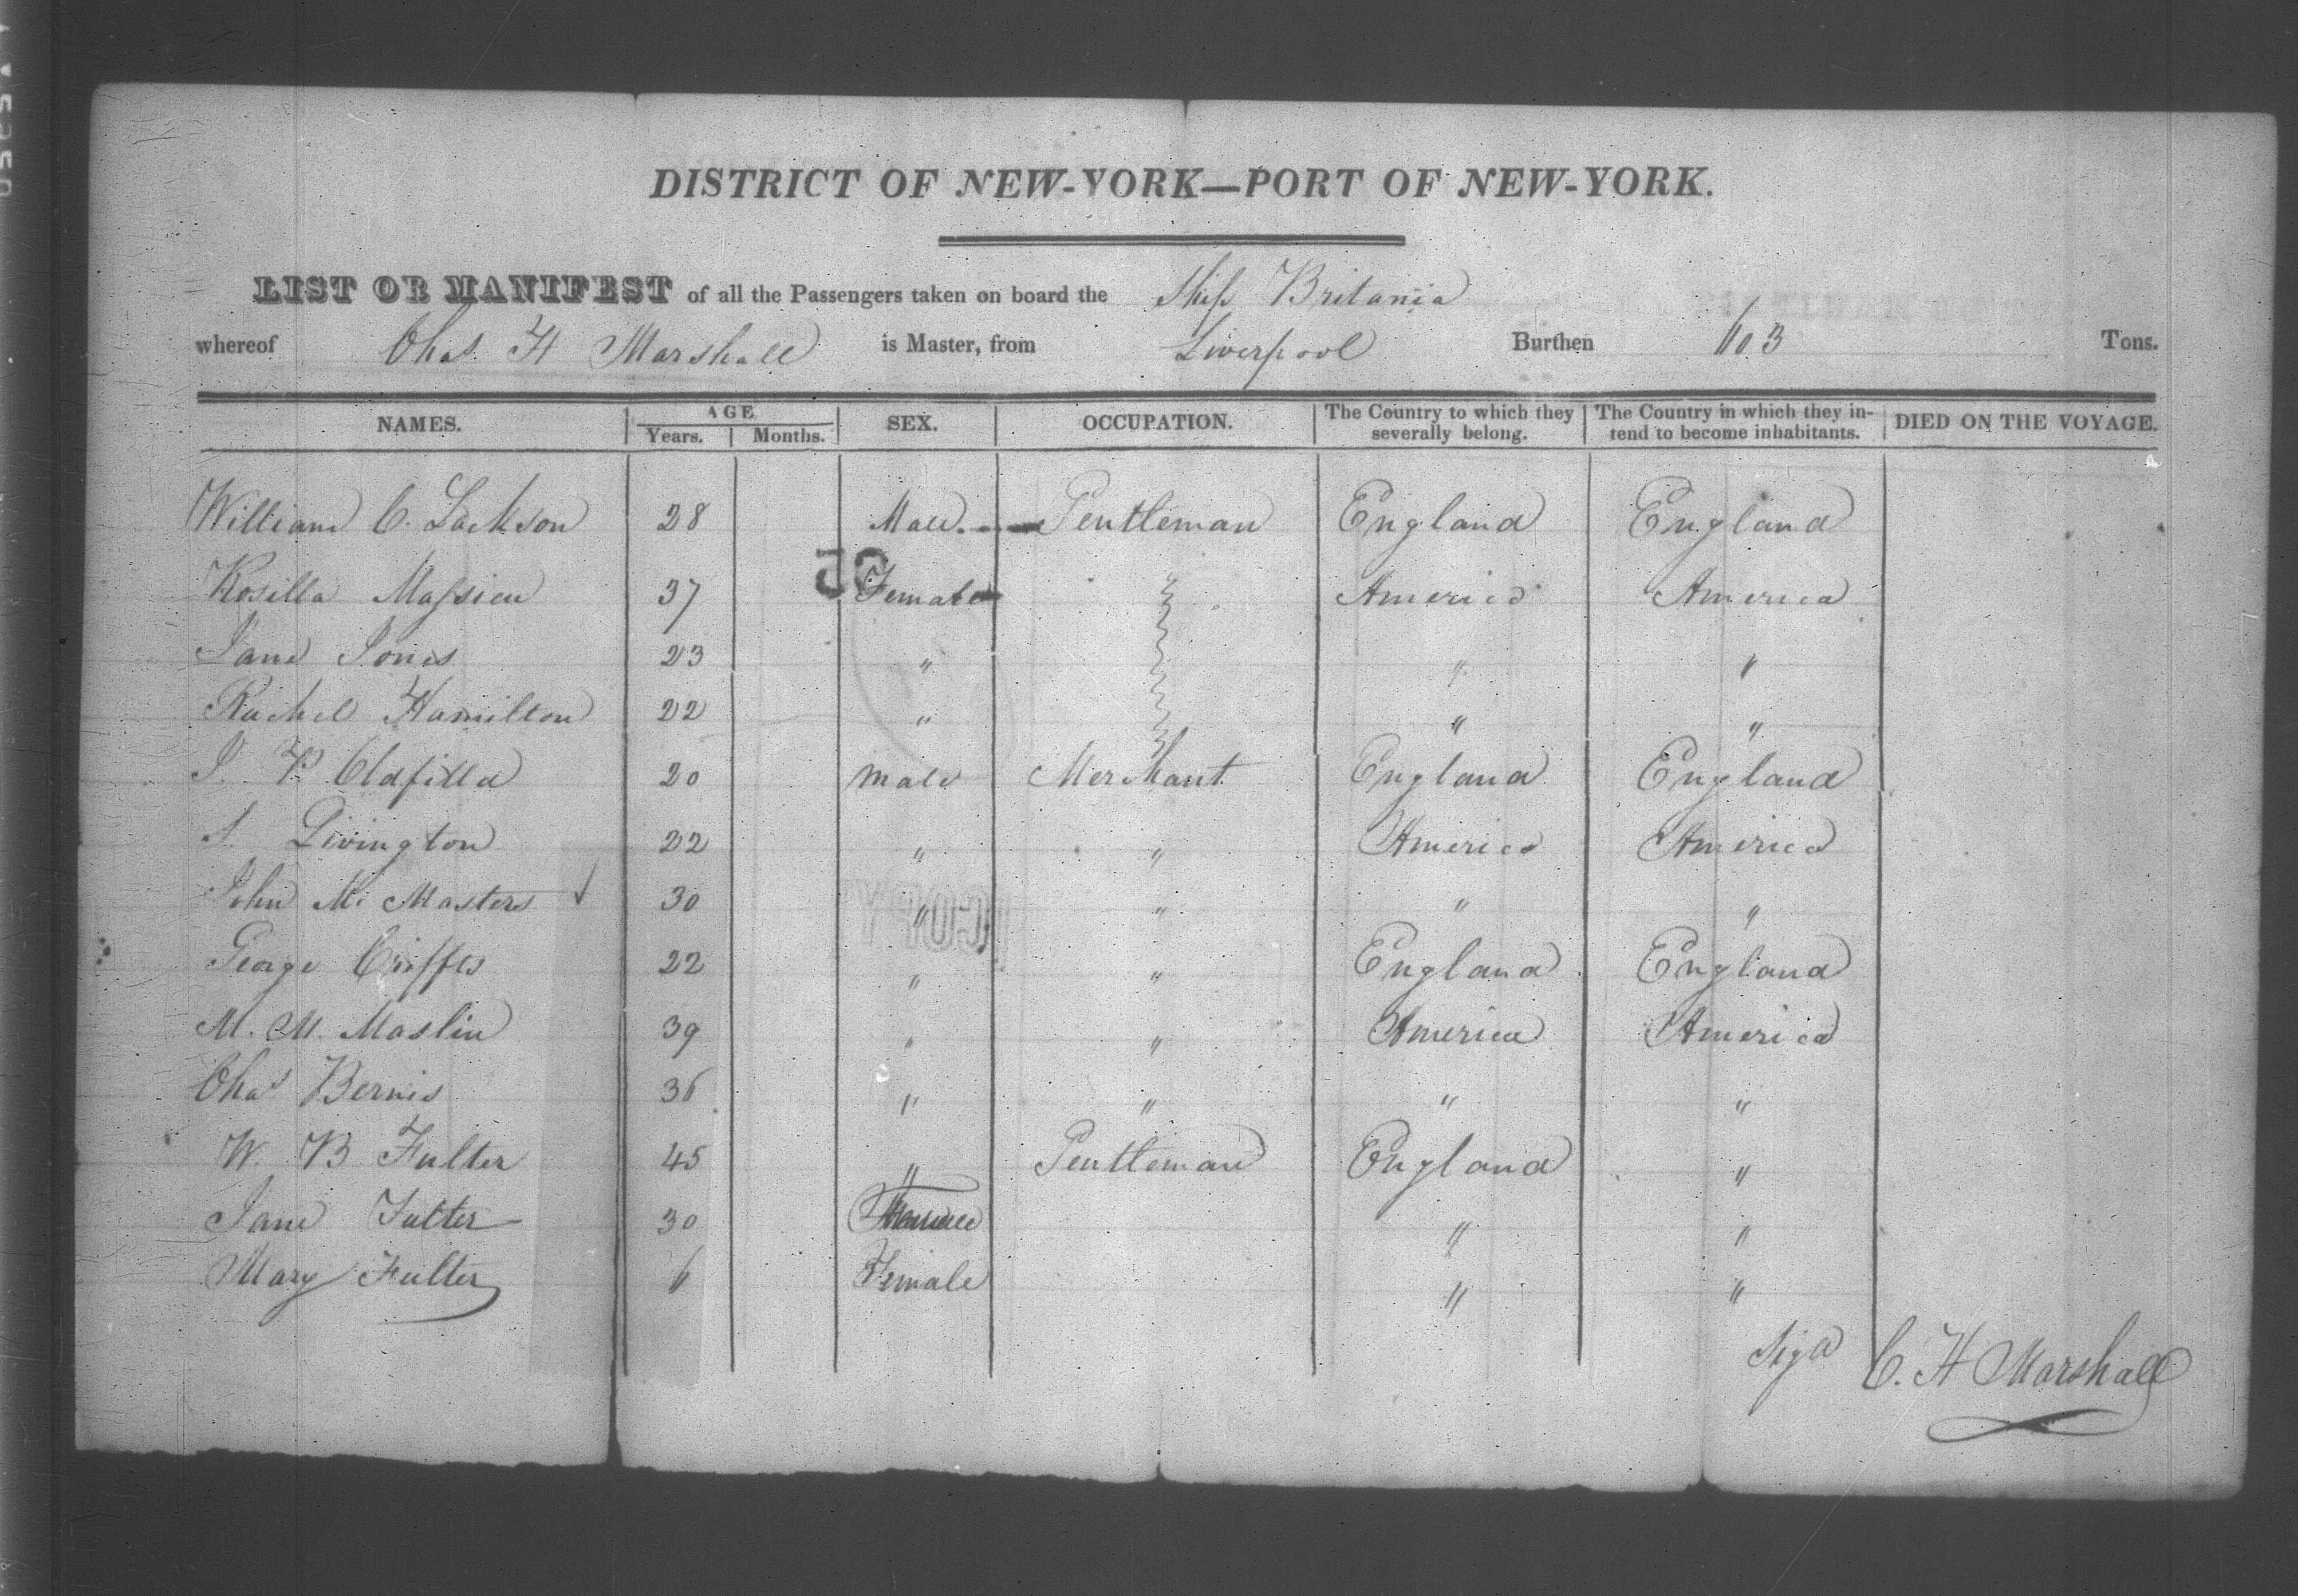 DISTRICT OF NEW-YORK—PORT OF NEW-YORK.
LIST OR MANIFEST of all the Passengers taken on board the Ship Britania
whereof Chas H Marshall is Master, from Liverpool Burthen 603 Tons.
NAMES. AGE Years. Months. SEX. OCCUPATION. The Country to which they severally belong. The Country in which they intend to become inhabitants. DIED ON THE VOYAGE.
William C. Jackson 28 Male Gentleman England England
Rosilla Massieu 37 Female America America
Jane Jones 23 " " "
Rachel Hamilton 22 " " "
J. P Oldfilld 20 male Merchant England England
S. Livington 22 " " America America
John Mc Masters 30 " " " "
George 22 " " England England
M. M. Maslin 39 " " America America
Chas 36 " " " "
W. B Fulter 45 " Gentleman England "
Jane Fulter 30 Female " "
Mary Fulter 6 Female " "
COPY
Sigd C. H Marshall